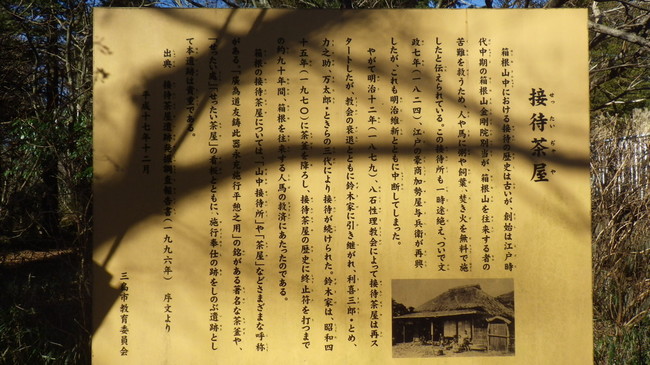 接待茶屋
せったいぢゃや
箱根山中における接待の歴史は古いが、創始は江戸時
代中期の箱根山金剛院別当が、箱根山を往来する者の
苦難を救うため、人や馬に粥や飼葉、焚き火を無料で施
したと伝えられている。この接待所も一時途絶え、ついで文
政七年(一八二四)、江戸の豪商加勢屋与兵衛が再興
したが、これも明治維新とともに中断してしまった。
やがて明治十二年(一八七九)、八石性理教会によって接待茶屋は再ス
タートしたが、教会の衰退とともに鈴木家に引き継がれ、利喜三郎・とめ、
力之助、万太郎・ときらの三代により接待が続けられた。鈴木家は、昭和四
十五年(一九七〇)に茶釜を降ろし、接待茶屋の歴史に終止符を打つまで
の約九十年間、箱根を往来する人馬の救済にあたったのである。
箱根の接待茶屋については、「山中接待所」や「茶屋」などさまざまな呼称
がある。「廣為道友鋳此器永充施行平憩之用」の銘がある著名な茶釜や、
「せったい庵」「せったい茶屋」の看板とともに、施行奉仕の跡をしのぶ遺跡とし
て本遺跡は貴重である。
出典 接待茶屋遺跡発掘調査報告書(一九九六年) 序文より
平成十七年十二月
三島市教育委員会